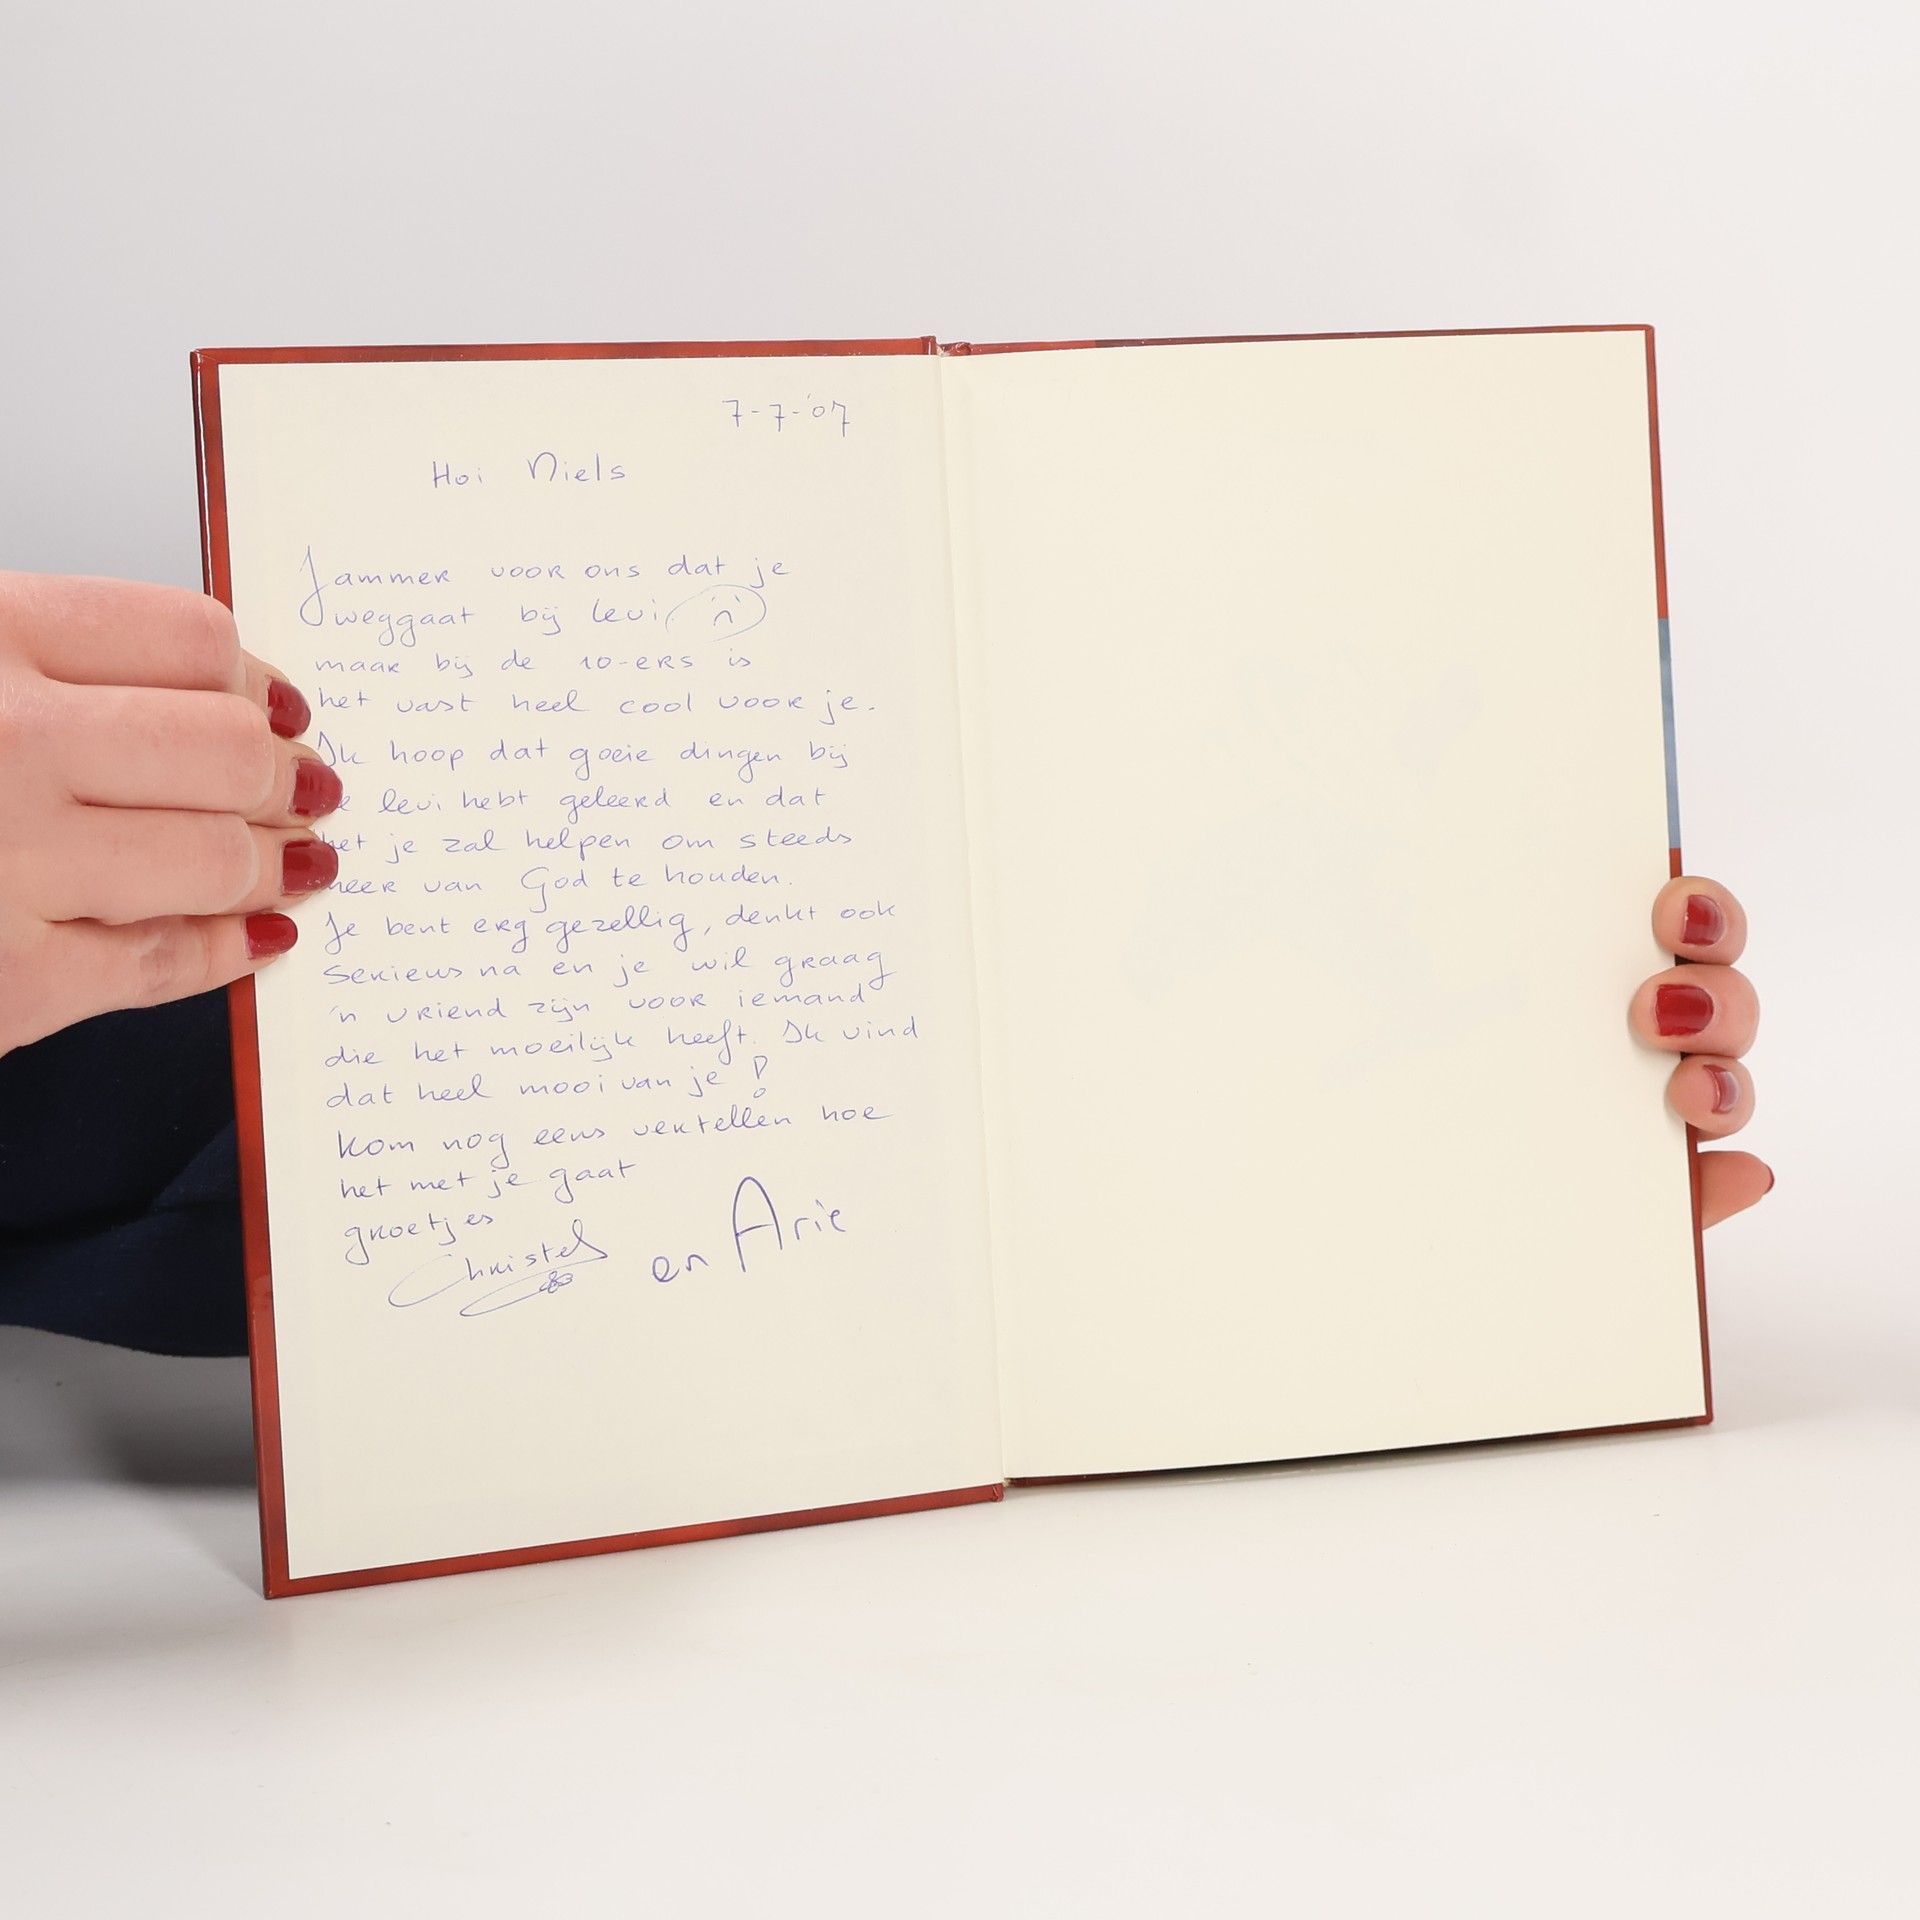 7-7-'07
Hoi Niels
Jammer voor ons dat je
weggaat bij levi
maar bij de 10-ers is
het vast heel cool voor je.
Ik hoop dat goeie dingen bij
levi hebt geleerd en dat
het je zal helpen om steeds
meer van God te houden.
Je bent erg gezellig, denkt ook
serieus na en je wil graag
'n vriend zijn voor iemand
die het moeilijk heeft. Ik vind
dat heel mooi van je !
Kom nog eens vertellen hoe
het met je gaat
groetjes
Christel en Arie